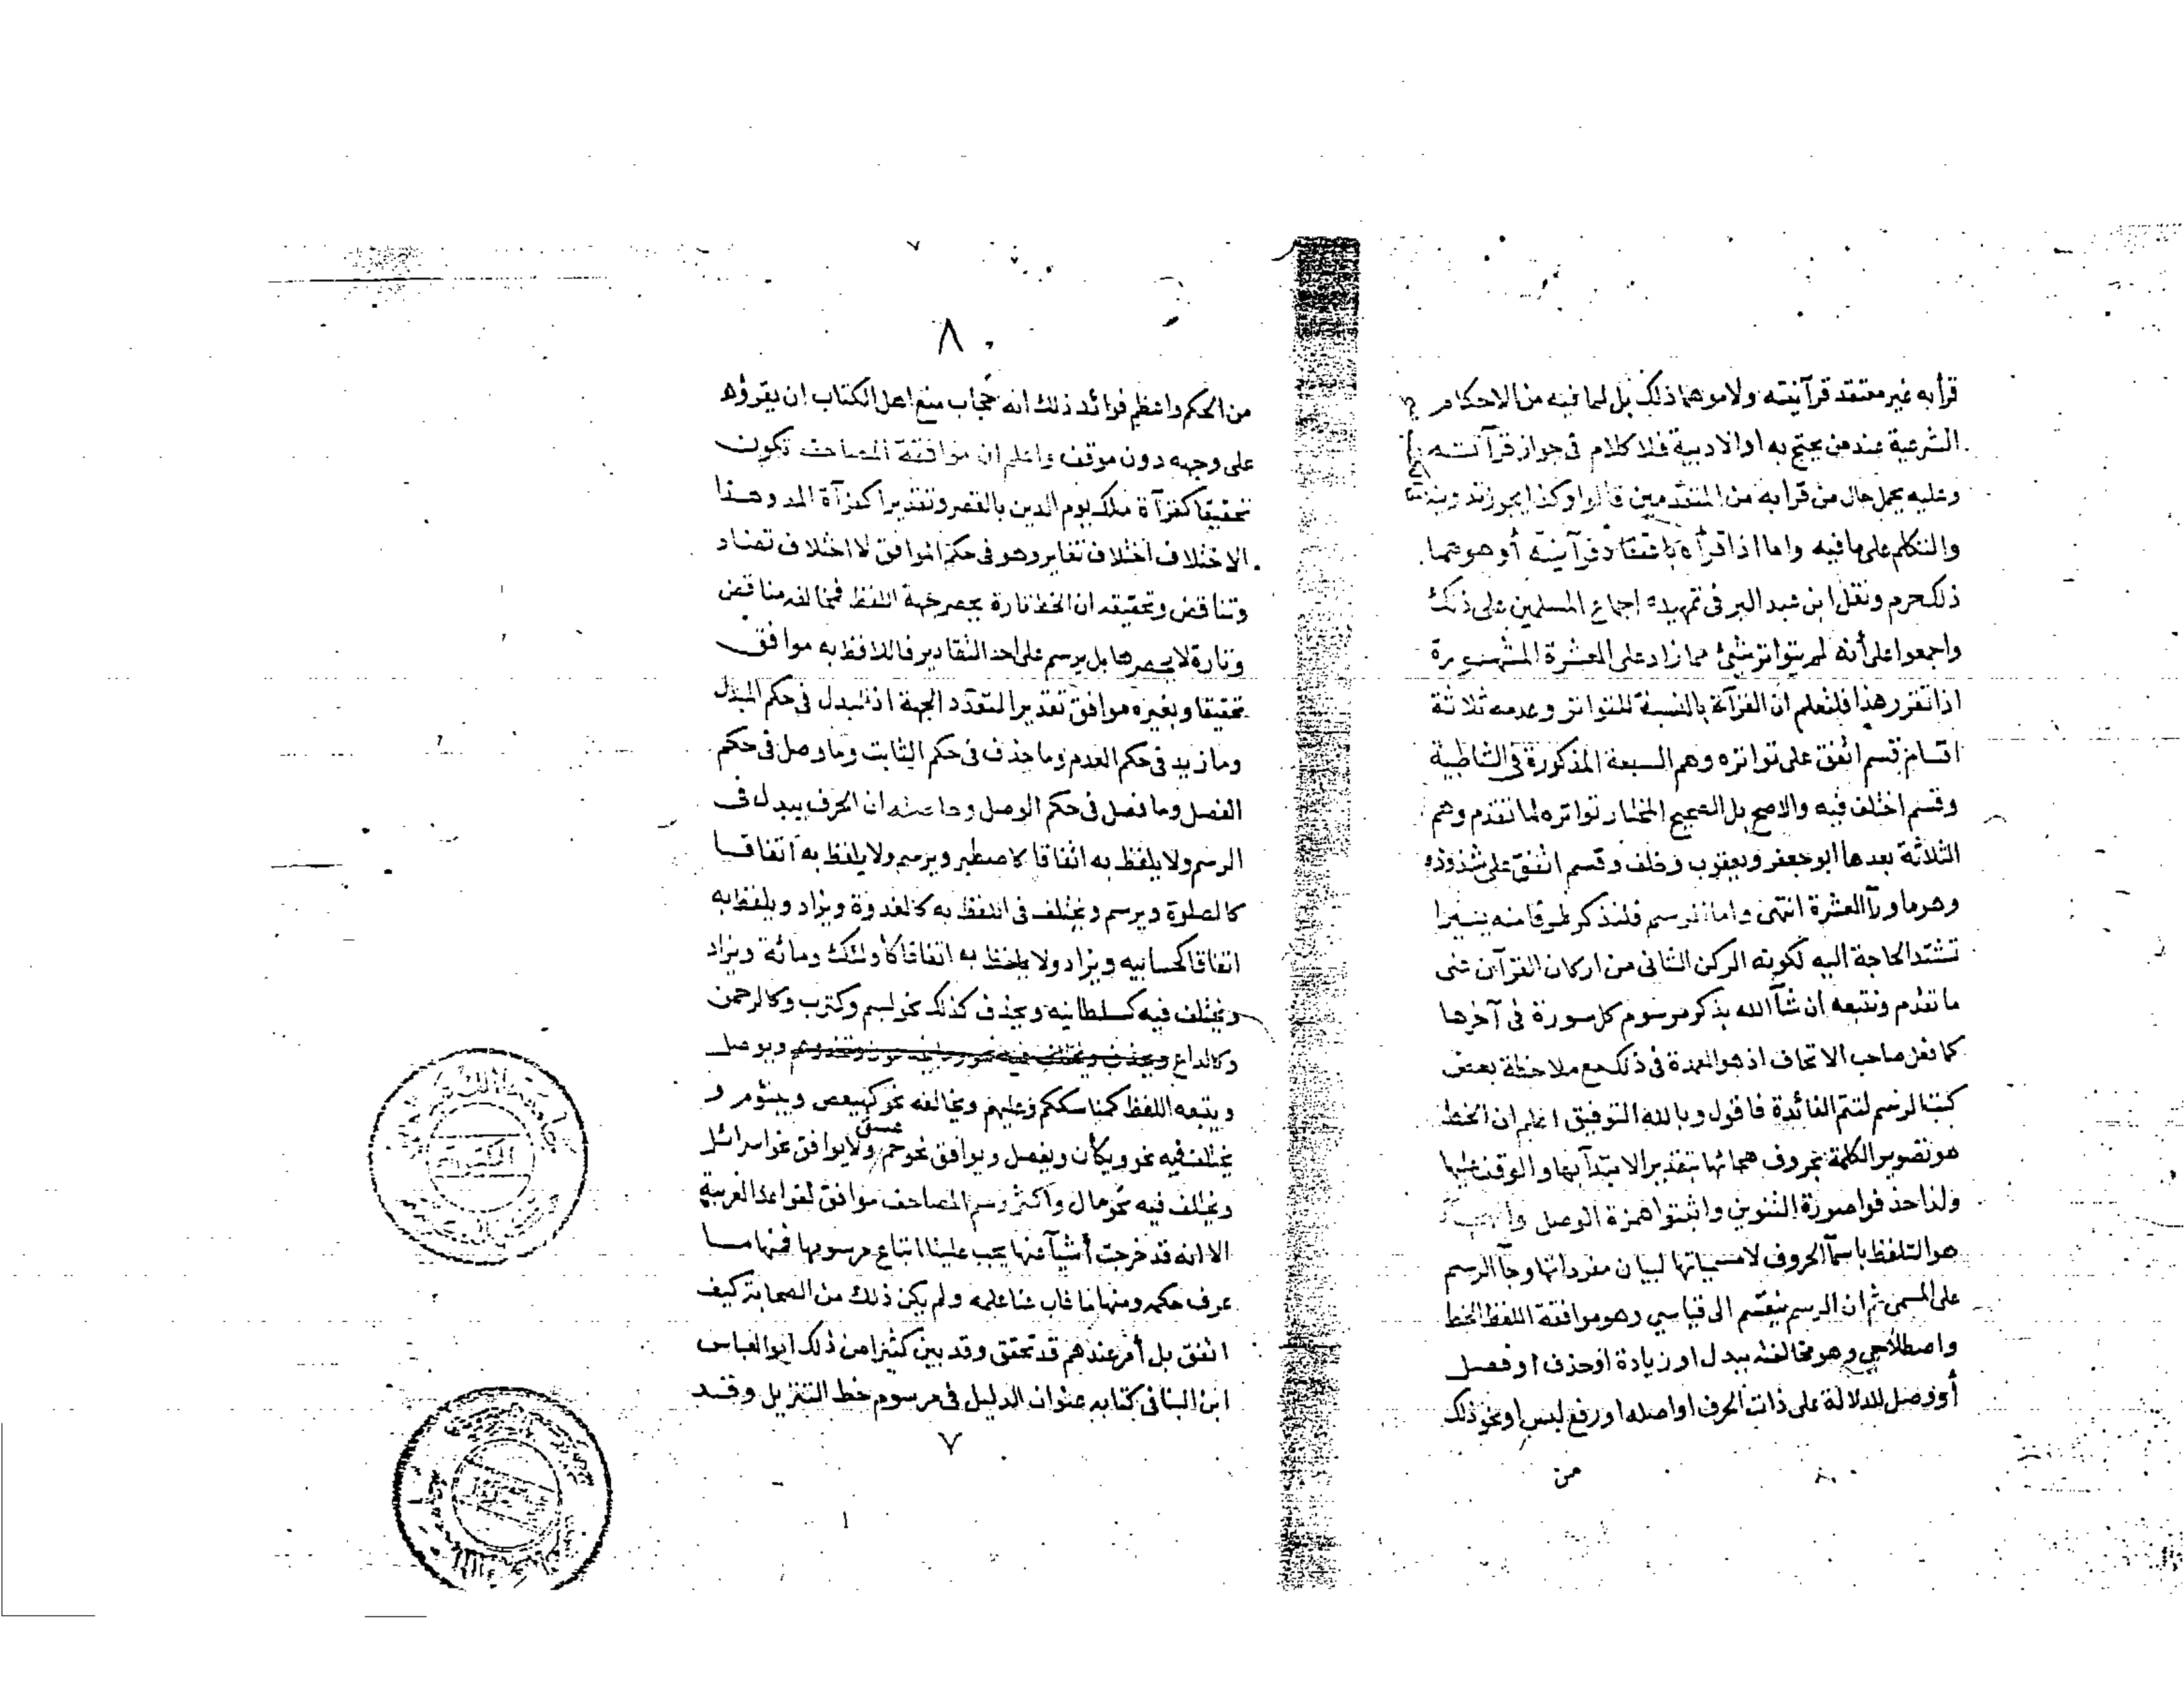 قرأ به غير معتقد قرآنيته ولا موهما ذلك بل لما فيه من الاحكام
الشرعية عند من يحتج به او الادبية فلا كلام في جواز قرآئته
وعليه يحمل حال من قرا به من المتقدمين قالوا وكذا يجوز تدوينه
والتكلم على ما فيه واما اذا قرأه باعتقاد قرآنيته أو موهما
ذلك حرم ونقل ابن عبد البر في تمهيده اجماع المسلمين على ذلك
واجمعوا على أنه لم يتواتر شئ مما زاد على العشرة المشهورة
اذا تقرر هذا فلتعلم ان القرآءة بالنسبة للتواتر وعدمه ثلاثة
اقسام قسم اتفق على تواتره وهم السبعة المذكورة في الشاطبية
وقسم اختلف فيه والاصح بل الصحيح المختار تواتره لما تقدم وهم
الثلاثة بعدها ابو جعفر ويعقوب وخلف وقسم اتفق على شذوذه
وهو ما ورآ العشرة انتهى واما الرسم فلنذكر طرفا منه يسيرا
تشتد الحاجة اليه لكونه الركن الثانى من اركان القرآن على
ما تقدم ونتبعه ان شآ الله بذكر مرسوم كل سورة في آخرها
كما فعل صاحب الاتحاف اذ هو العمدة في ذلك مع ملاحظة بعض
كتب الرسم لتتم الفائدة فاقول وبالله التوفيق اعلم ان الخط
هو تصوير الكلمة بحروف هجائها بتقدير الابتدآ بها والوقف عليها
ولذا حذفوا صورة التنوين واثبتوا همزة الوصل
هو التلفظ باسمآ الحروف لا مسمياتها لبيان مفرداتها وجآ الرسم
على المسمى ثم ان الرسم ينقسم الى قياسي وهو موافقة اللفظ الخط
واصطلاحي وهو مخالفته ببدل او زيادة أو حذف او فصل
أو وصل للدلالة على ذات الحرف او اصله او رفع لبس او نحو ذلك
من
٨
من الحكم واعظم فوائد ذلك انه حجاب منع اهل الكتاب ان يقرؤه
على وجهه دون موقف واعلم ان موافقة المصاحف تكون
تحقيقا كقرآءة ملك يوم الدين بالقصر وتقديرا كقرآءة المد وهذا
الاختلاف اختلاف تغاير وهو في حكم الموافق لا اختلاف تضاد
وتناقض وتحقيقه ان الخط تارة يحصر جهة اللفظ فمخالفه مناقض
وتارة لا يحصرها بل يرسم على احد التقادير فاللافظ به موافق
تحقيقا وبغيره موافق تقديرا لتعدد الجهة اذ البدل في حكم المبدل
وما زيد في حكم العدم وما حذف في حكم الثابت وما وصل في حكم
الفصل وما فصل في حكم الوصل وحاصله ان الحرف يبدل في
الرسم ولا يلفظ به اتفاقا كاصطبر ويرسم ولا يلفظ به اتفاقا
كالصلوة ويرسم ويختلف في اللفظ به كالغدوة ويزاد ويلفظ به
اتفاقا كحسابيه ويزاد ولا يلفظ به اتفاقا كأولئك ومائة ويزاد
ويختلف فيه كسلطانيه ويحذف كذلك نحو لبسم وكترب وكالرحمن
وكالداع ويحذف ويختلف فيه ويوصل
ويتبعه اللفظ كمناسككم وعليهم ويخالفه نحو كهيعص ويبنؤم و
يختلف فيه نحو ويكأن ويفصل ويوافق نحو حم عسق ولا يوافق نحو اسرائل
ويختلف فيه نحو مال واكثر رسم المصاحف موافق لقواعد العربية
الا انه قد خرجت أشيآ عنها يجب علينا اتباع مرسومها فمنها ما
عرف حكمه ومنها ما غاب عنا علمه ولم يكن ذلك من الصحابة كيف
اتفق بل أمر عندهم قد تحقق وقد بين كثيرا من ذلك ابو العباس
ابن البنا في كتابه عنوان الدليل في مرسوم خط التنزيل وقد
٧